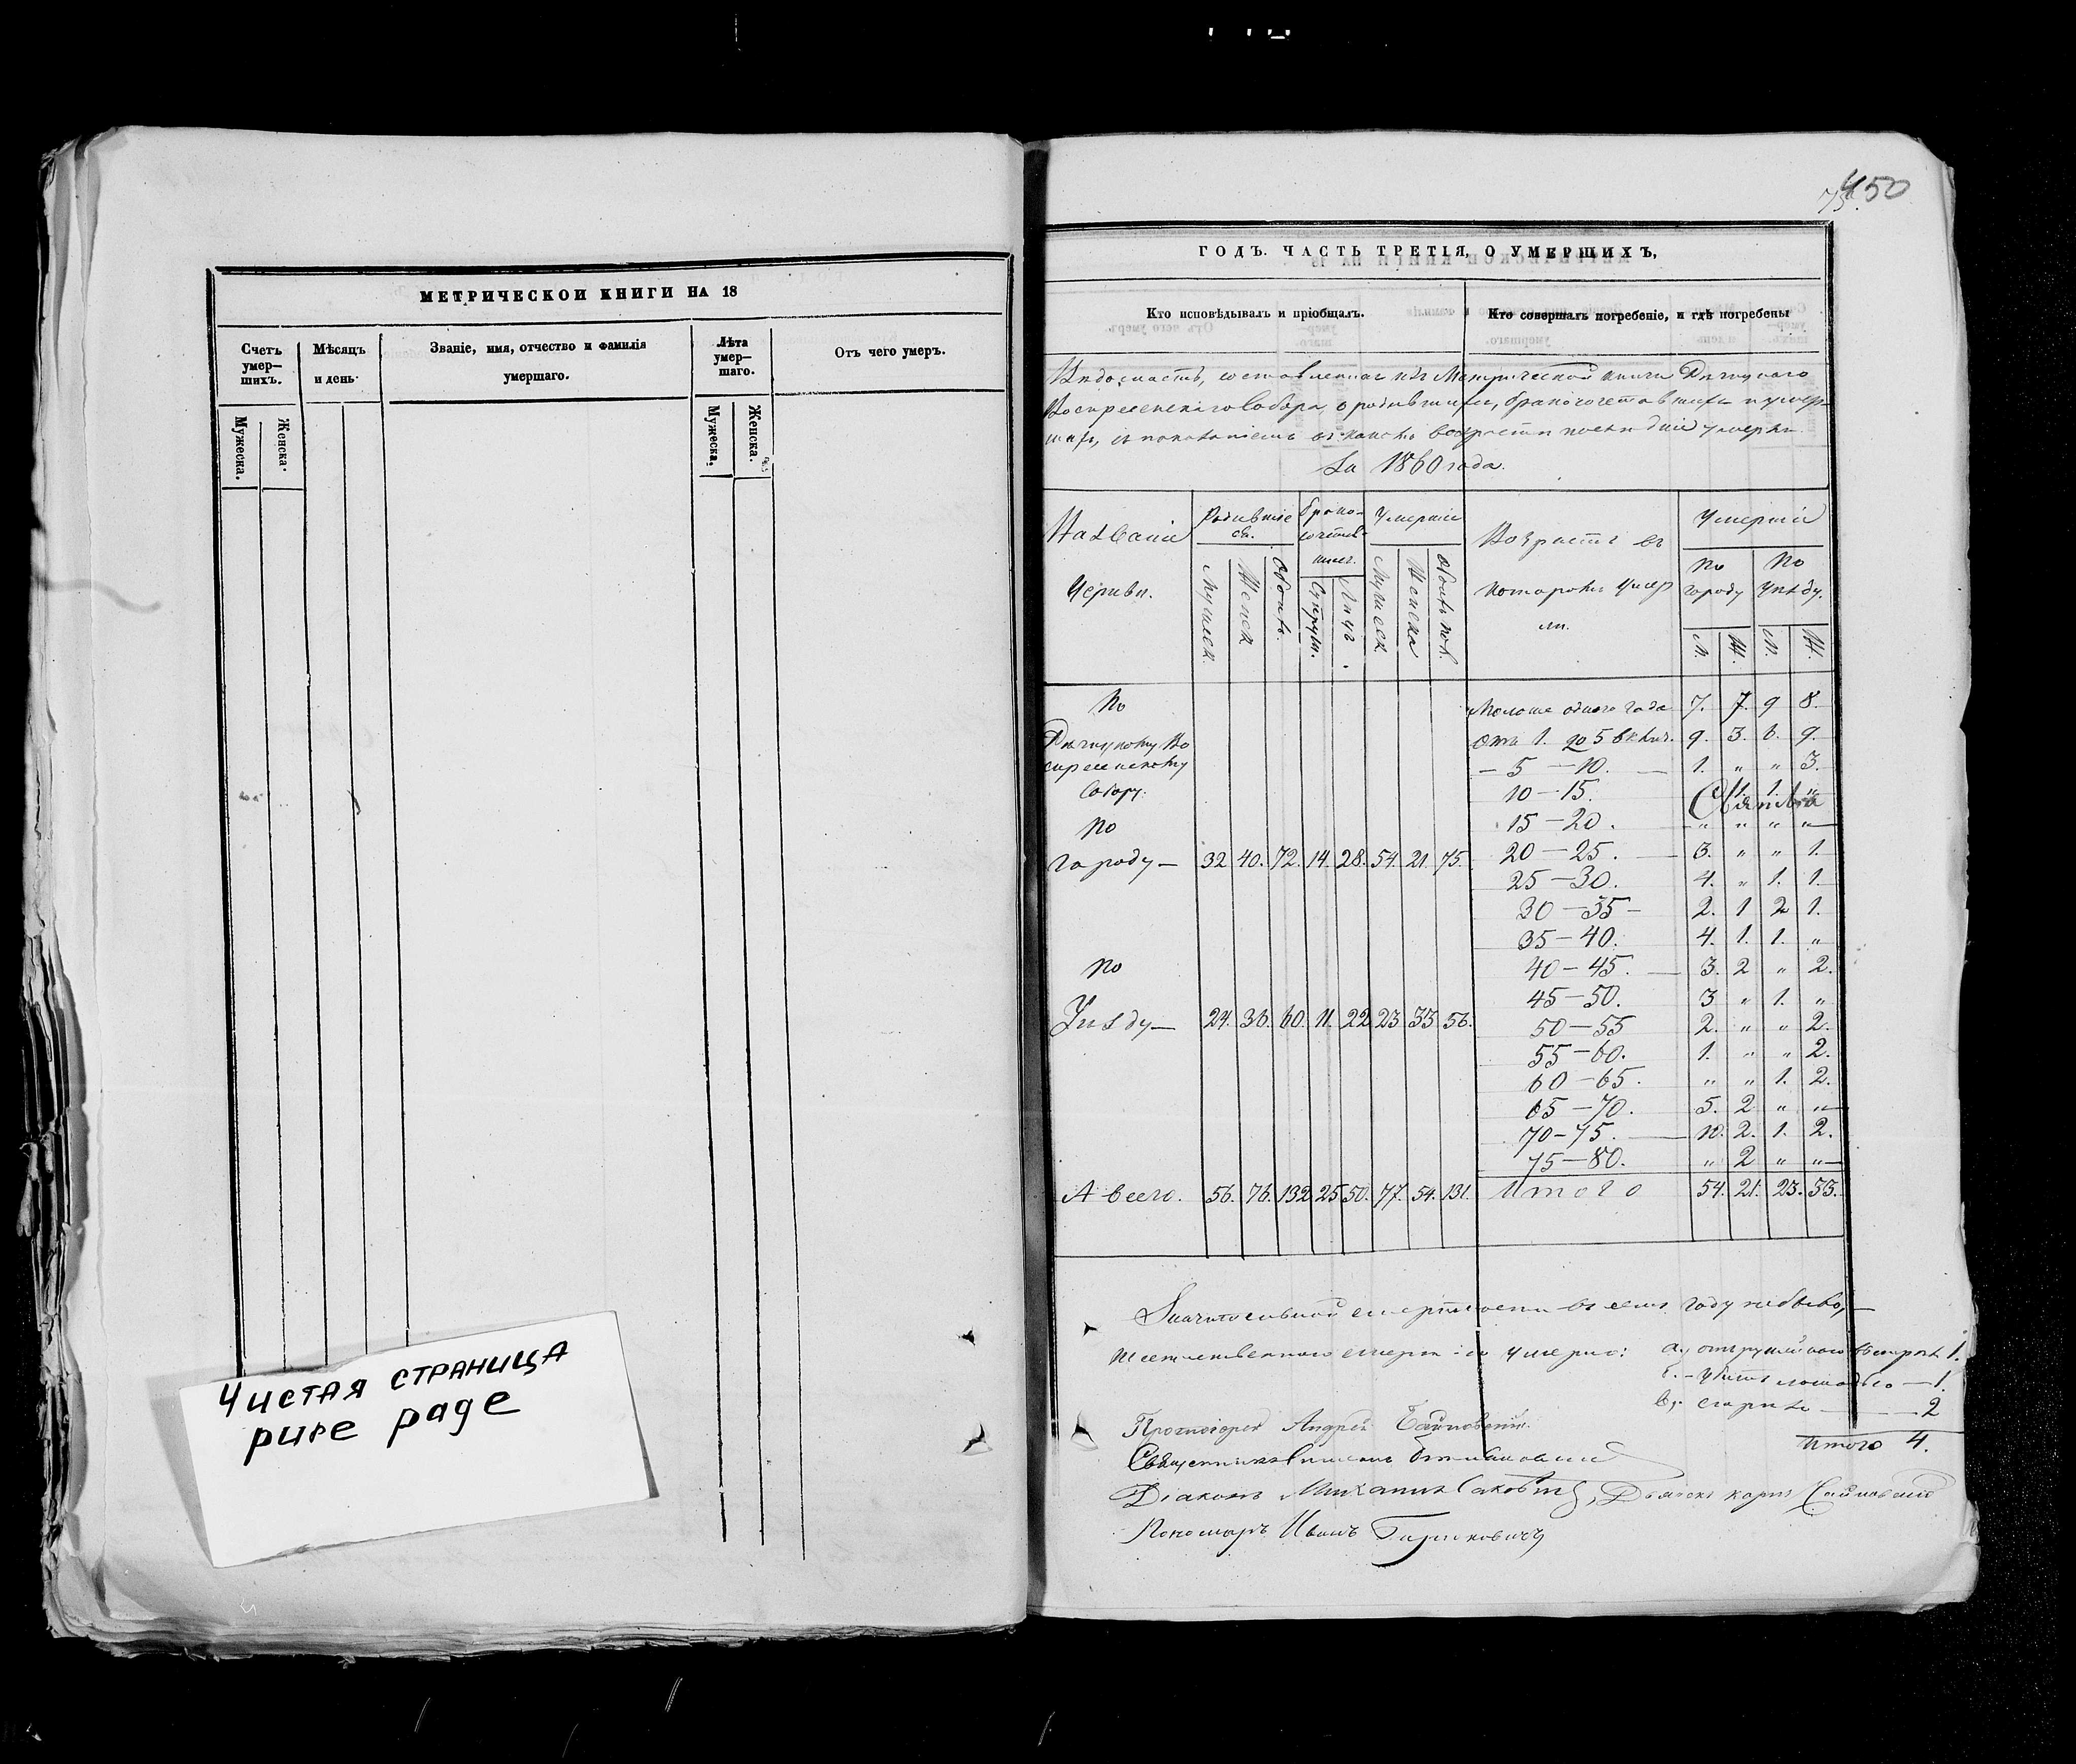 МЕТРИЧЕСКОИ КНИГИ НА 18
Счетъ умер-шихъ.
Мѣсяцъ и день
Званіе, имя, отчество и фамилія умершаго.
Лѣта умер-шаго.
Отъ чего умеръ.
Мужеска.
Женска.
Мужеска.
Женска.
Чистая страница
pure page
450
75.
ГОДЪ. ЧАСТЬ ТРЕТІЯ, О УМЕРШИХЪ,
Кто исповѣдывалъ и пріобщалъ.
Кто совершалъ погребеніе, и гдѣ погребены
Вѣдомость, составленная изъ Метрической книги Рѣчицкаго
Воскресенскаго Собора, о родившихся, бракосочетавшихся и умер-
шихъ, съ показаніемъ въ какомъ возрастѣ
За 1860 года.
Названіе Церкви.
Родившіеся.
Бракосочетавшихся.
Умершіе
Мужеск.
Женск.
Обоихъ.
Супруж.
Лицъ.
Мужеск.
Женска
Обоихъ пол.
Возрастъ въ которомъ умерли.
Умершіе
По городу
По Уѣзду.
М. Ж. М. Ж.
По Рѣчицкому Воскресенскому Собору.
По городу — 32 40. 72. 14. 28. 54. 21. 75.
По Уѣзду — 24. 36. 60. 11. 22 23 33 56.
А всего. 56. 76. 132 25 50. 77. 54. 131.
Моложе одного года 7. 7. 9 8.
Отъ 1. до 5 включ. 9. 3. 6. 9.
— 5 — 10. — 1. „ „ 3.
10 — 15. „ 1. 1. „
15 — 20. „ „ „ „
20 — 25. — 3. „ „ 1.
25 — 30. 4. „ 1. 1.
30 — 35 — 2. 1 2 1.
35 — 40. 4. 1. 1. „
40 — 45. — 3. 2 „ 2.
45 — 50. 3 „ 1. „
50 — 55 2. „ „ 2.
55 — 60. 1. „ „ 2.
60 — 65. „ „ 1. 2.
65 — 70. 5. 2 „ „
70 — 75. — 10. 2. 1. 2.
75 — 80. „ 2 „ „
Итого 54. 21. 23. 33.
Значительной смертности въ семъ году не было,
смертію умерло: а, отъ ружейнаго выстрѣла 1.
б. — Убитъ лошадью — 1.
в, — 2
Итого 4.
Протоіерей Андрей
Священникъ
Діаконъ Михаилъ Саковичъ, Дьячекъ Карпъ
Пономарь Иванъ